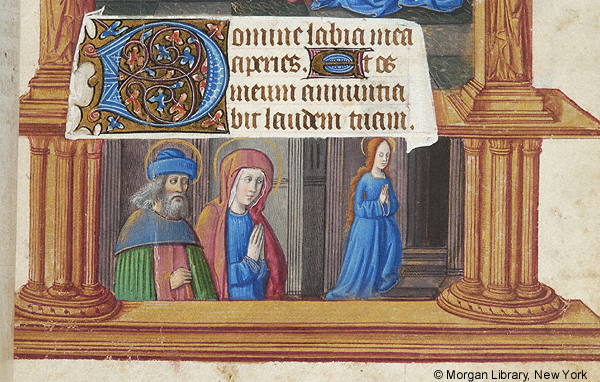 Domine labia mea
aperies. Et os
meum annuntia
bit laudem tuam.
© Morgan Library, New York